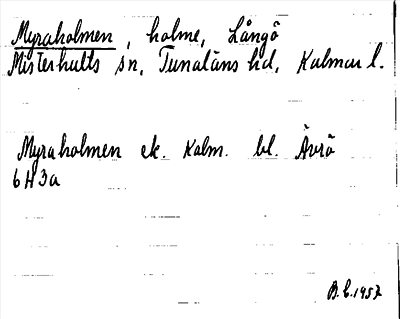 Myraholmen, holme, Långö
Misterhults sn, Tunaläns hd, Kalmar l.
Myraholmen ek. Kalm. bl. Ävrö
6H3a
B.C. 1957